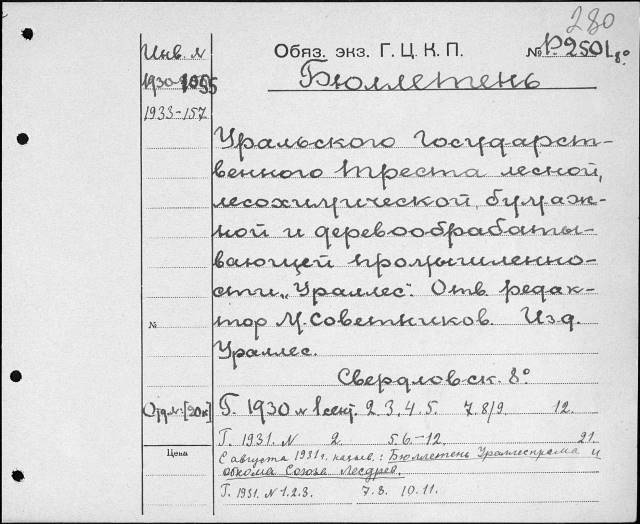 280
Инв. №
Обяз. экз. Г. Ц. К. П.
№ P2501 8°
1055
Бюллетень
1933-157
Уральского Государст-
венного треста лесной,
лесохимической, бумаж-
ной и деревообрабаты-
вающей промышленно-
сти „Ураллес“. Отв. редак-
№
тор М. Советников. Изд.
Ураллес.
Свердловск. 8°
Отд. №: [20 к]
Г. 1930 № 1 сент. 2. 3. 4. 5. 7. 8/9. 12.
Г. 1931. № 2 5.6.-12. 21.
Цена
С августа 1931 г. назыв.: Бюллетень Ураллеспрома и
обкома Союза Лесдрев.
Г. 1931. № 1. 2. 3. 7. 8. 10. 11.